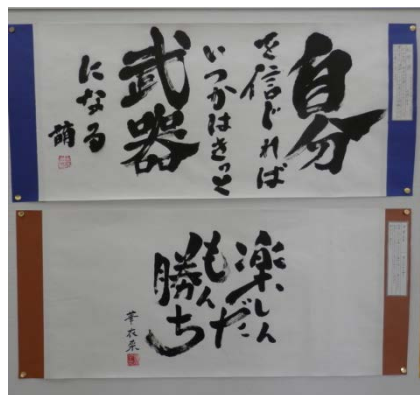 自分
を信じれば
いつかはきっと
武器
になる
萌
楽しん
だ
もん
勝ち
華衣来